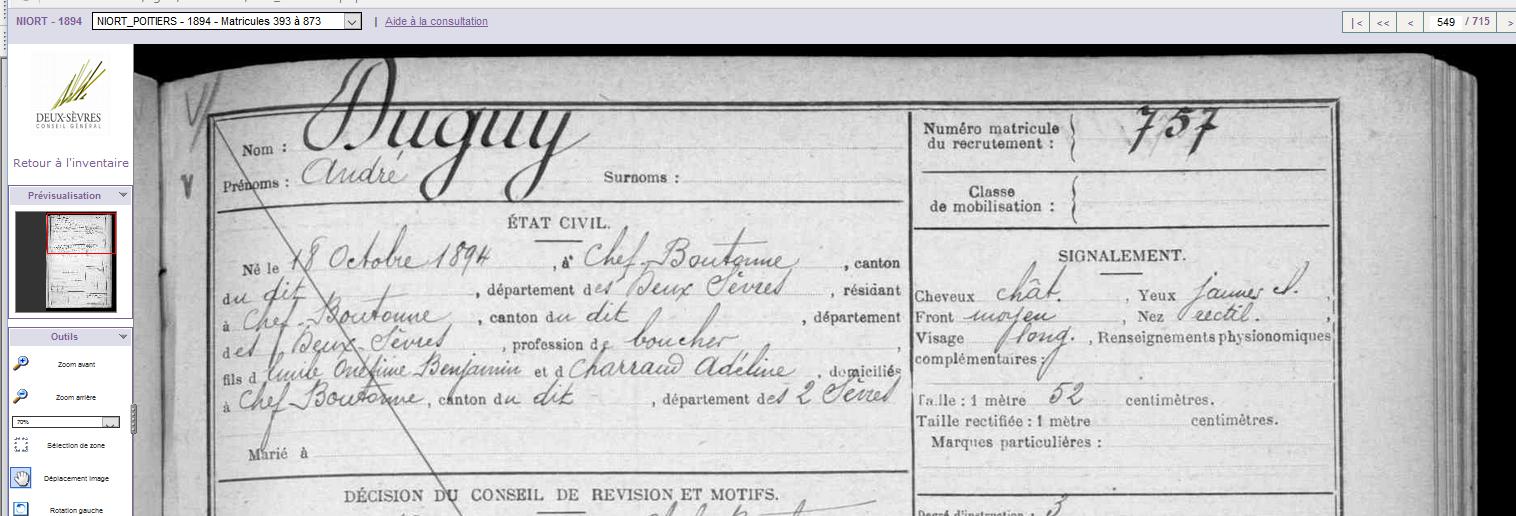 NIORT - 1894
NIORT_POITIERS - 1894 - Matricules 393 à 873
| Aide à la consultation
|< << < 549 / 715 >
DEUX-SÈVRES
CONSEIL GÉNÉRAL
Retour à l'inventaire
Prévisualisation
Outils
Zoom avant
Zoom arrière
70%
Sélection de zone
Déplacement image
Rotation gauche
Nom : Duguy
Prénoms : André Surnoms :
ÉTAT CIVIL.
Né le 18 Octobre 1894, à Chef-Boutonne, canton
du dit, département des Deux Sèvres, résidant
à Chef-Boutonne, canton du dit, département
des Deux Sèvres, profession de boucher,
fils d' Onésime Benjamin et d Charraud Adéline, domiciliés
à Chef-Boutonne, canton du dit, département des 2 Sèvres
Marié à
DÉCISION DU CONSEIL DE REVISION ET MOTIFS.
Numéro matricule
du recrutement : 757
Classe
de mobilisation :
SIGNALEMENT.
Cheveux chât., Yeux jaunes
Front moyen, Nez rectil.
Visage long., Renseignements physionomiques
complémentaires :
Taille : 1 mètre 52 centimètres.
Taille rectifiée : 1 mètre centimètres.
Marques particulières :
Degré d'instruction : 3